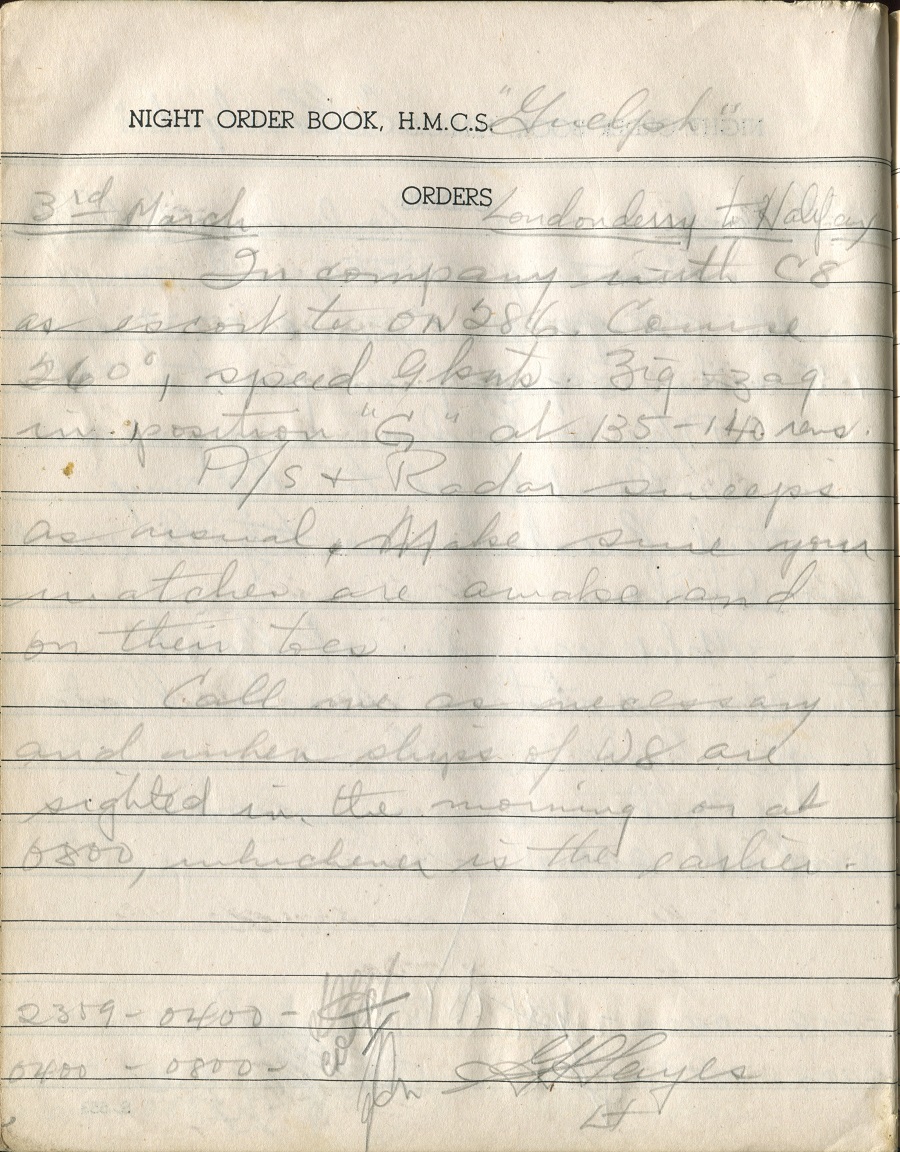 NIGHT ORDER BOOK, H.M.C.S. "Guelph"
ORDERS
3rd March Londonderry to Halifax
In company with C8
as escort to ON 286. Course
260°, speed 9 knots. Zig-zag
in position "G" at 135-140 revs.
A/S + Radar sweeps
as usual. Make sure your
watches are awake and
on their toes.
Call me as necessary
and when ships of W8 are
sighted in the morning or at
0800, whichever is the earlier.
2359 - 0400 -
0400 - 0800 - Hayes
Lt